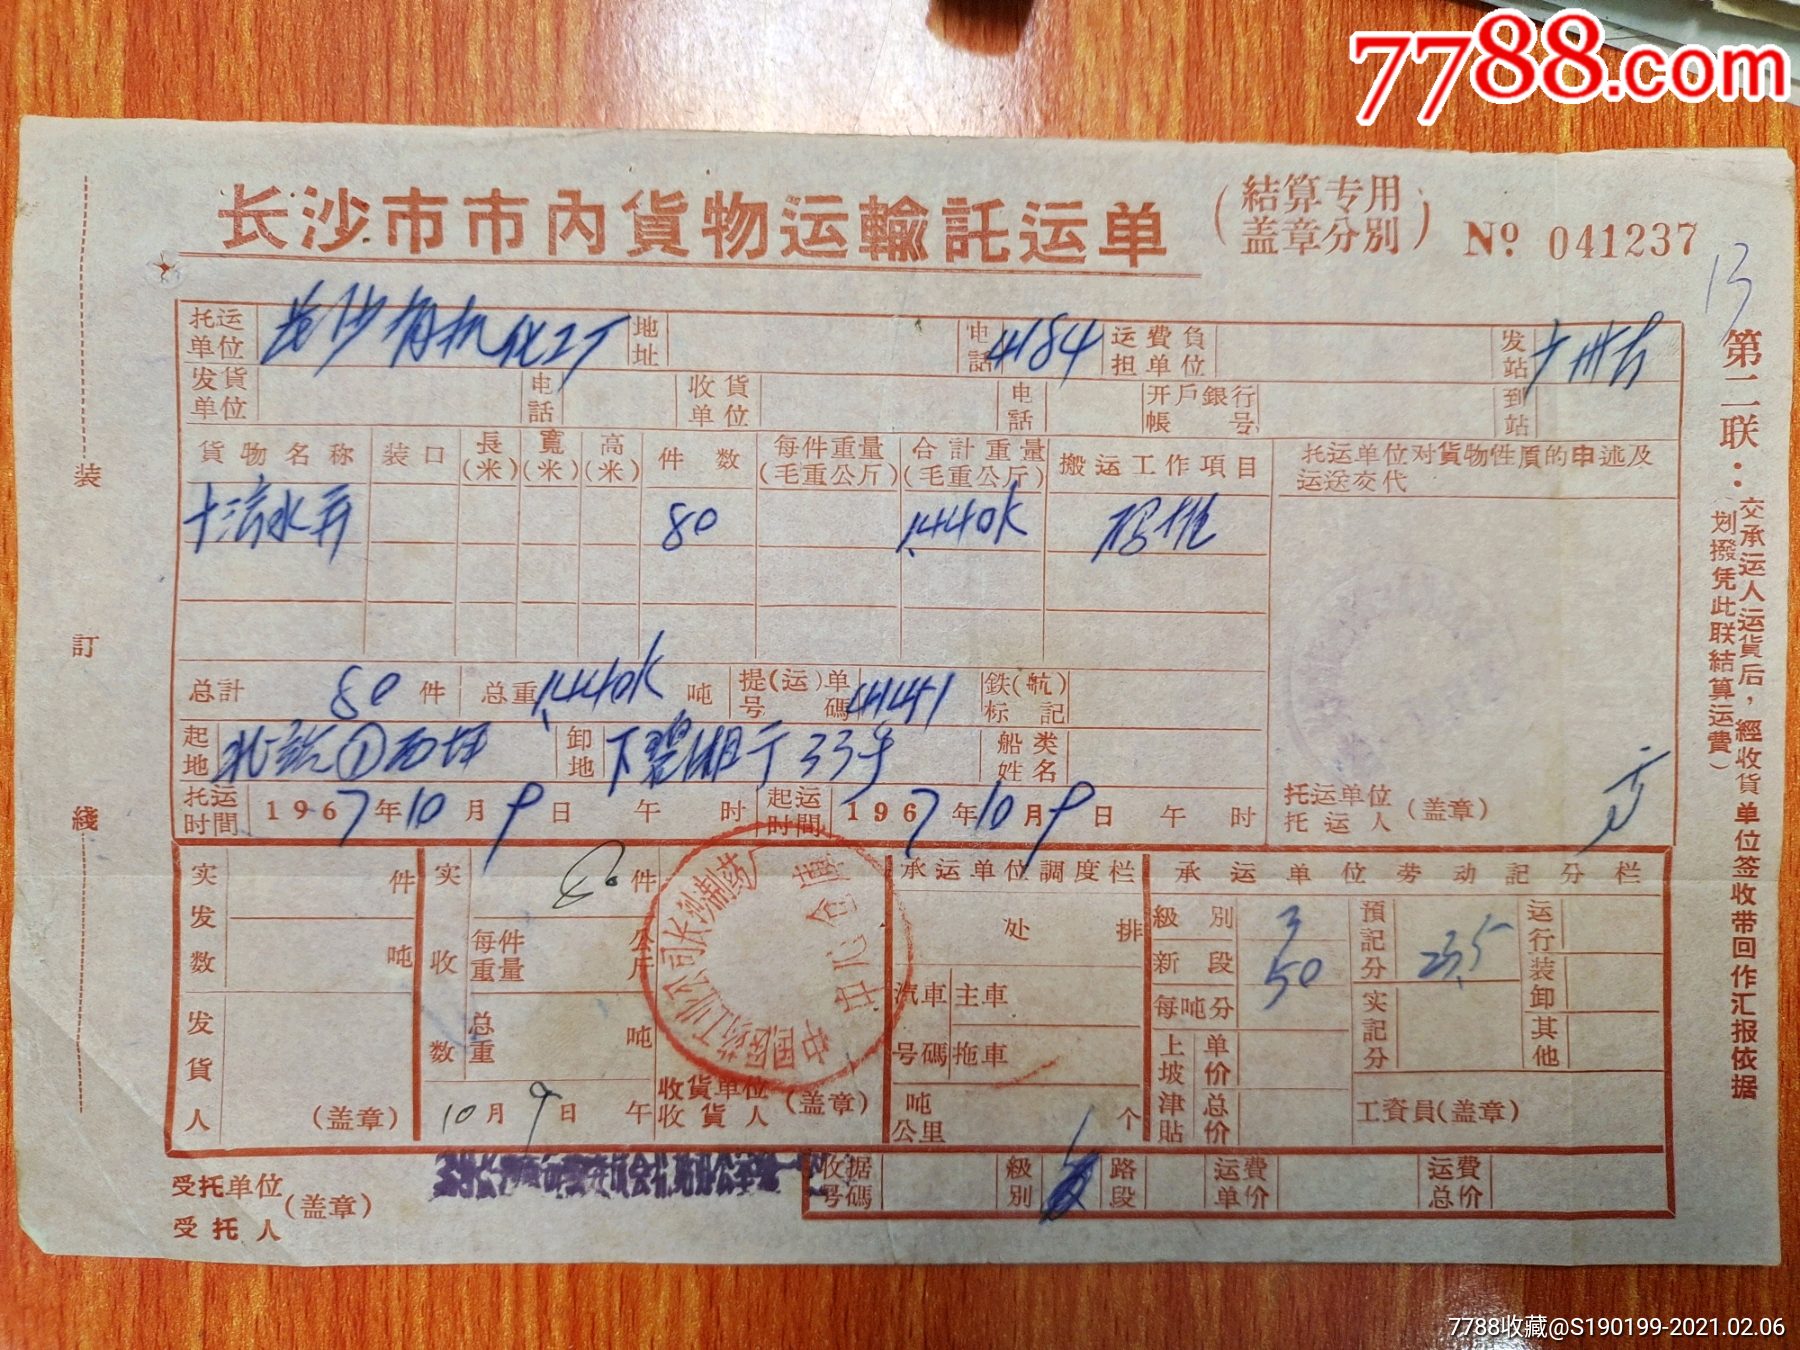 7788.com
长沙市市內貨物运輸託运单
(結算专用
盖章分別)
№ 041237
13
托运单位 长沙有机化工厂 地址 电話 4184 运費負担单位 发站
发货单位 电話 收貨单位 电話 开戶銀行帳号 到站
貨物名称 装口 長(米) 寬(米) 高(米) 件数 每件重量(毛重公斤) 合計重量(毛重公斤) 搬运工作項目 托运单位对貨物性质的申述及运送交代
80 1.440K
总計 80 件 总重 1.440K 吨 提(运)单号碼 4141 鉄(航)标記
起地 北站①西坪 卸地 下碧湘 33号 船类姓名
托运时間 1967年10月9日 午 时 起运时間 1967年10月9日 午 时 托运单位托运人(盖章)
实发数 件 吨 发貨人 (盖章)
实收数 件 每件重量 公斤 总重 吨
10月9日 午 收貨单位收貨人(盖章)
承运单位調度栏
处 排
汽車号碼 主車 拖車
吨公里 个
承运单位劳动記分栏
級別 3 預記分 23.5 运行装卸
新段 50
每吨分 实記分 其他
上坡津貼 单价 总价 工資員(盖章)
中国医药工业公司长沙制药厂
受托单位
受托人
(盖章)
收据号碼 級別 路段 运費单价 运費总价
装
訂
綫
第二联：交承运人运貨后，經收貨单位签收带回作汇报依据
划撥凭此联結算运費)
7788收藏@S190199-2021.02.06